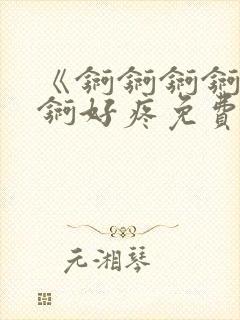 《锕锕锕锕
锕好疼免費
元湘琴